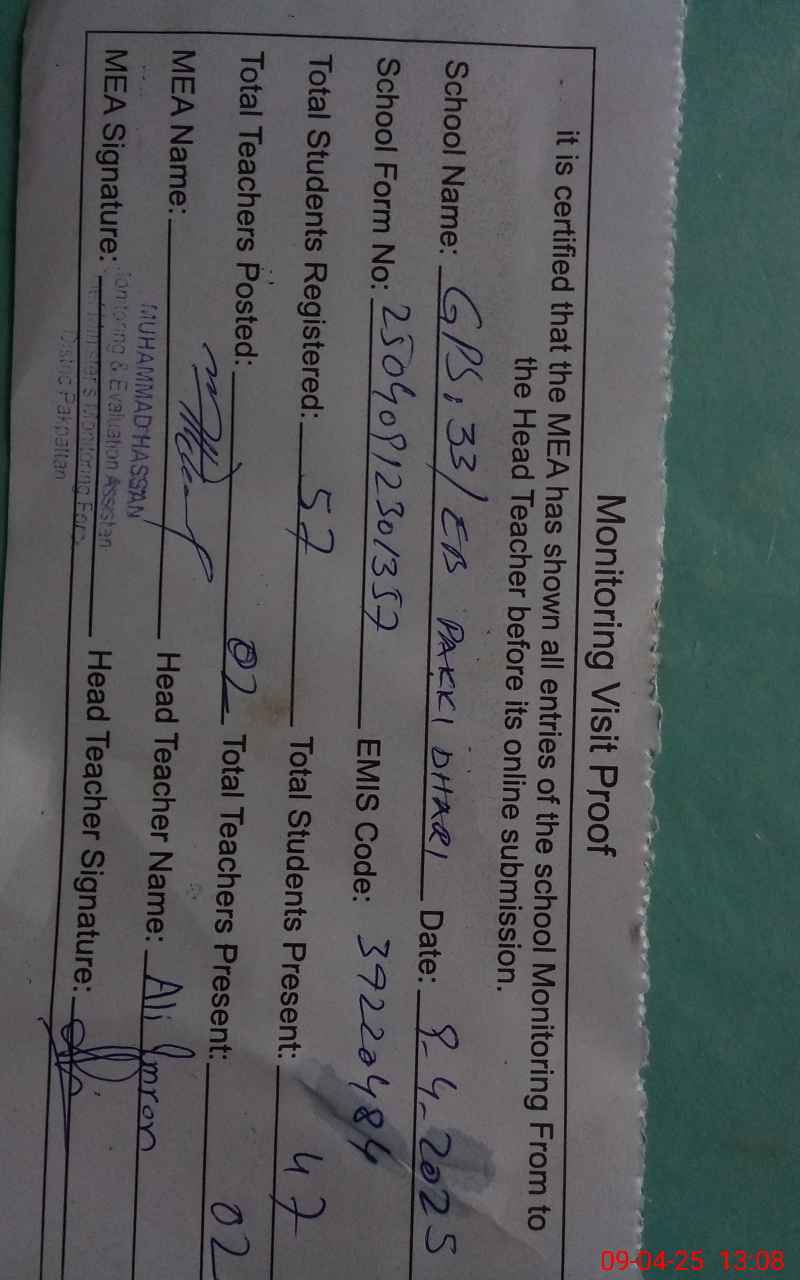 Monitoring Visit Proof
it is certified that the MEA has shown all entries of the school Monitoring From to
the Head Teacher before its online submission.
School Name: GPS, 33/EB PAKKI DHARI Date: 9-4-2025
School Form No: 25040912301357 EMIS Code: 39220484
Total Students Registered: 57 Total Students Present: 47
Total Teachers Posted: 02 Total Teachers Present: 02
MEA Name: Head Teacher Name: Ali Imron
MUHAMMAD HASSAN
MEA Signature: Head Teacher Signature:
Monitoring & Evaluation Assistan
Minister's Monitoring Force
District Pakpattan
09-04-25 13:08